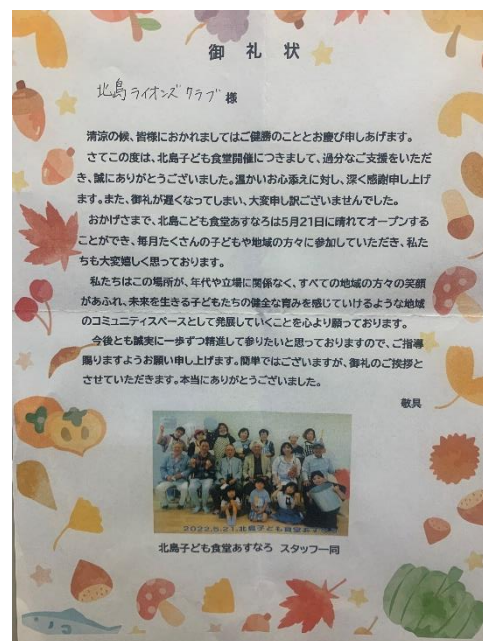 御礼状
北島ライオンズクラブ 様
清涼の候、皆様におかれましてはご健勝のこととお慶び申しあげます。
さてこの度は、北島子ども食堂開催につきまして、過分なご支援をいただ
き、誠にありがとうございました。温かいお心添えに対し、深く感謝申し上げ
ます。また、御礼が遅くなってしまい、大変申し訳ございませんでした。
おかげさまで、北島こども食堂あすなろは5月21日に晴れてオープンする
ことができ、毎月たくさんの子どもや地域の方々に参加していただき、私た
ちも大変嬉しく思っております。
私たちはこの場所が、年代や立場に関係なく、すべての地域の方々の笑顔
があふれ、未来を生きる子どもたちの健全な育みを感じていけるような地域
のコミュニティスペースとして発展していくことを心より願っております。
今後とも誠実に一歩ずつ精進して参りたいと思っておりますので、ご指導
賜りますようお願い申し上げます。簡単ではございますが、御礼のご挨拶と
させていただきます。本当にありがとうございました。
敬具
2022.5.21.北島子ども食堂あすなろ
北島子ども食堂あすなろ スタッフ一同